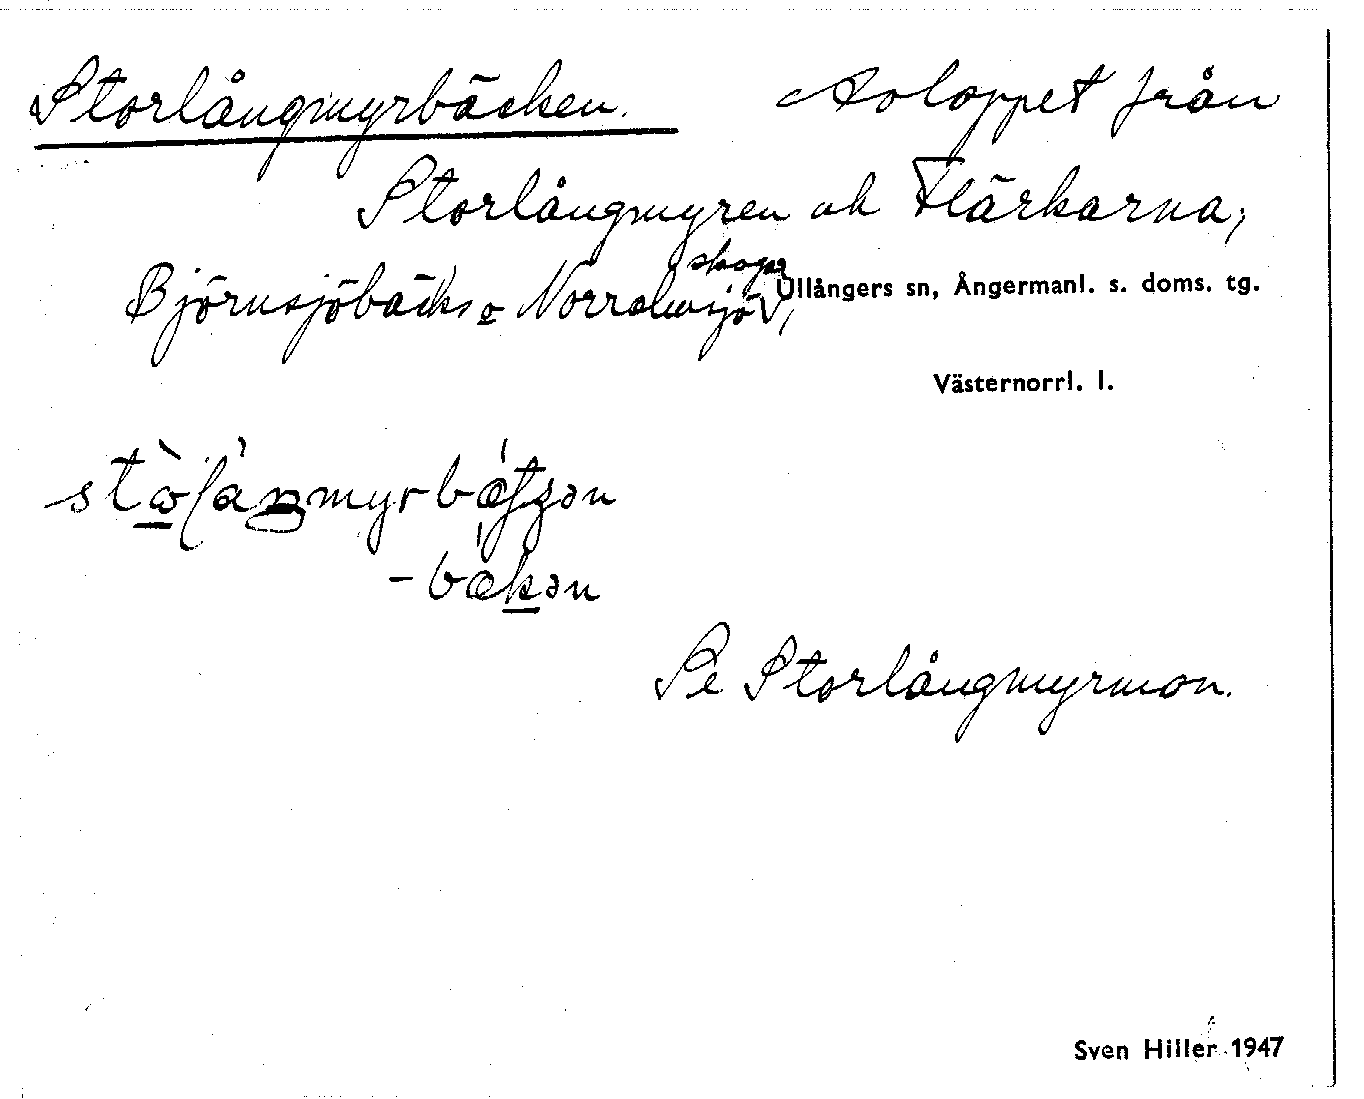 Storlångmyrbäcken. Avloppet från
Storlångmyren ock Flärkarna,
Björnsjöbäcks o skogar,
Ullångers sn, Ångermanl. s. doms. tg.
Västernorrl. l.
-bækən
Se Storlångmyrmon.
Sven Hiller 1947